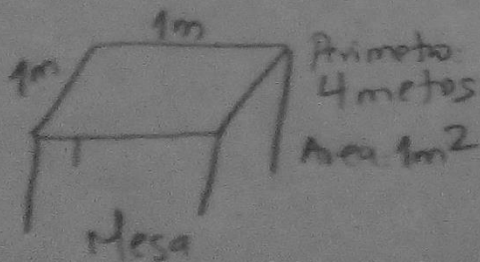 1m
1m
Perimetro
4 metos
Area 1m²
Mesa